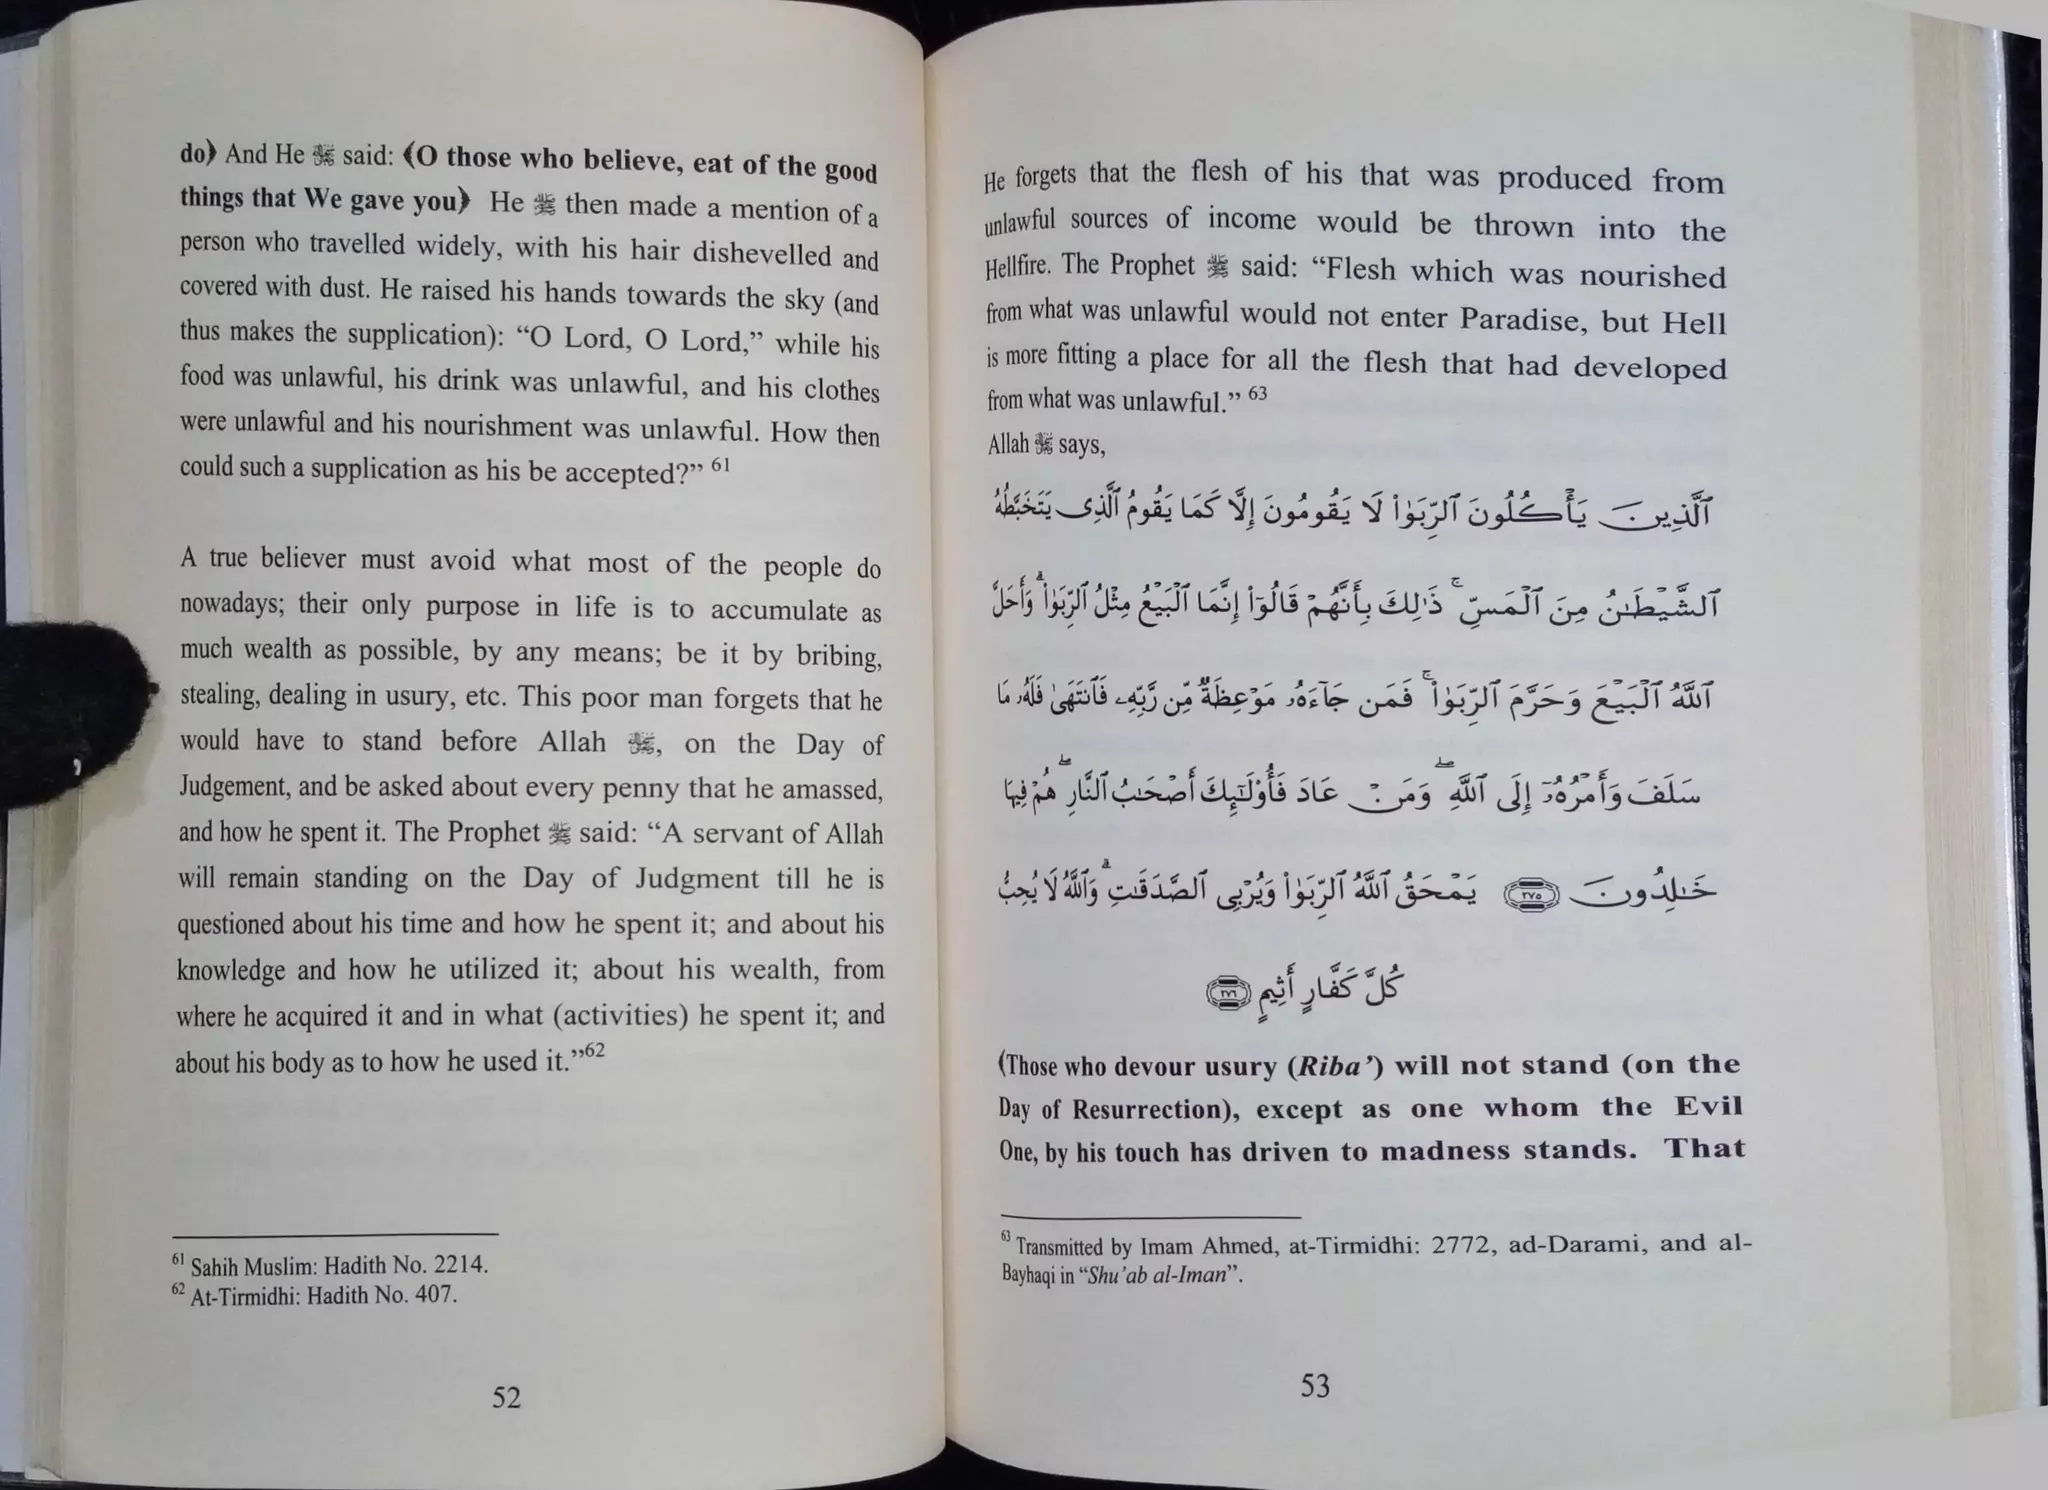 do﴿ And He ﷻ said: ﴾O those who believe, eat of the good
things that We gave you﴿ He ﷺ then made a mention of a
person who travelled widely, with his hair dishevelled and
covered with dust. He raised his hands towards the sky (and
thus makes the supplication): “O Lord, O Lord,” while his
food was unlawful, his drink was unlawful, and his clothes
were unlawful and his nourishment was unlawful. How then
could such a supplication as his be accepted?” 61
A true believer must avoid what most of the people do
nowadays; their only purpose in life is to accumulate as
much wealth as possible, by any means; be it by bribing,
stealing, dealing in usury, etc. This poor man forgets that he
would have to stand before Allah ﷻ, on the Day of
Judgement, and be asked about every penny that he amassed,
and how he spent it. The Prophet ﷺ said: “A servant of Allah
will remain standing on the Day of Judgment till he is
questioned about his time and how he spent it; and about his
knowledge and how he utilized it; about his wealth, from
where he acquired it and in what (activities) he spent it; and
about his body as to how he used it.”62
61 Sahih Muslim: Hadith No. 2214.
62 At-Tirmidhi: Hadith No. 407.
52
He forgets that the flesh of his that was produced from
unlawful sources of income would be thrown into the
Hellfire. The Prophet ﷺ said: “Flesh which was nourished
from what was unlawful would not enter Paradise, but Hell
is more fitting a place for all the flesh that had developed
from what was unlawful.” 63
Allah ﷻ says,
ٱلَّذِينَ يَأْكُلُونَ ٱلرِّبَوٰا۟ لَا يَقُومُونَ إِلَّا كَمَا يَقُومُ ٱلَّذِى يَتَخَبَّطُهُ
ٱلشَّيْطَـٰنُ مِنَ ٱلْمَسِّ ۚ ذَٰلِكَ بِأَنَّهُمْ قَالُوٓا۟ إِنَّمَا ٱلْبَيْعُ مِثْلُ ٱلرِّبَوٰا۟ ۗ وَأَحَلَّ
ٱللَّهُ ٱلْبَيْعَ وَحَرَّمَ ٱلرِّبَوٰا۟ ۚ فَمَن جَآءَهُۥ مَوْعِظَةٌ مِّن رَّبِّهِۦ فَٱنتَهَىٰ فَلَهُۥ مَا
سَلَفَ وَأَمْرُهُۥٓ إِلَى ٱللَّهِ ۖ وَمَنْ عَادَ فَأُو۟لَـٰٓئِكَ أَصْحَـٰبُ ٱلنَّارِ ۖ هُمْ فِيهَا
خَـٰلِدُونَ ﴿٢٧٥﴾ يَمْحَقُ ٱللَّهُ ٱلرِّبَوٰا۟ وَيُرْبِى ٱلصَّدَقَـٰتِ ۗ وَٱللَّهُ لَا يُحِبُّ
كُلَّ كَفَّارٍ أَثِيمٍ ﴿٢٧٦﴾
﴾Those who devour usury (Riba’) will not stand (on the
Day of Resurrection), except as one whom the Evil
One, by his touch has driven to madness stands. That
63 Transmitted by Imam Ahmed, at-Tirmidhi: 2772, ad-Darami, and al-
Bayhaqi in “Shu’ab al-Iman”.
53